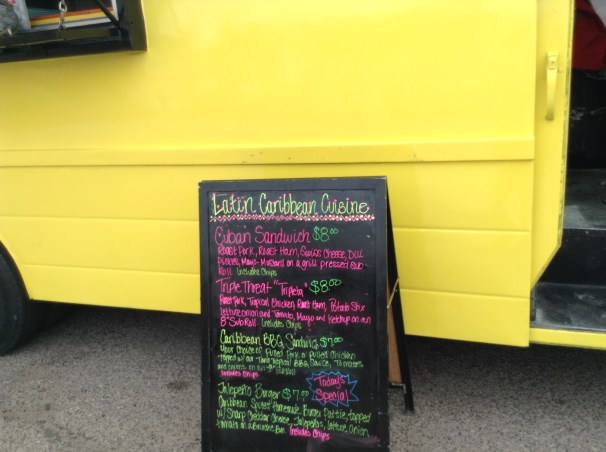 Latin Caribbean Cuisine
Cuban Sandwich $8.00
Roast Pork, Roast Ham, Swiss Cheese, Dill
Pickles, Mayo-Mustard on a grill pressed Sub
Roll. Includes Chips
Triple Threat "Tripleta" $8.00
Roast Pork, Tropical Chicken, Roast Ham, Potato Stix
lettuce onion and Tomato, Mayo and Ketchup on an
8" Sub Roll Includes Chips
Caribbean BBQ Sandwich $7.00
Your Choice of Pulled Pork or Pulled Chicken
topped w/ our Tropical BBQ Sauce, Tomatoes
and onions on an
Includes Chips
Today's
Special
Jalapeño Burger $7.00
Caribbean Spiced Homemade Burger Pattie topped
w/ Sharp Cheddar Cheese, Jalapeños, lettuce, onion
tomato on a Brioche Bun Includes Chips